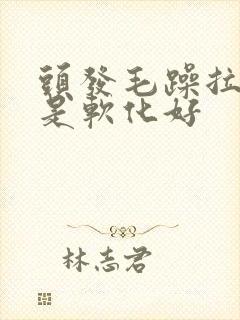 頭發毛躁拉
是軟化好
林志君